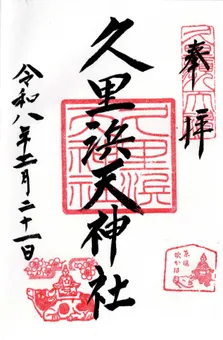 奉拝
久里浜天神社
令和八年二月二十一日